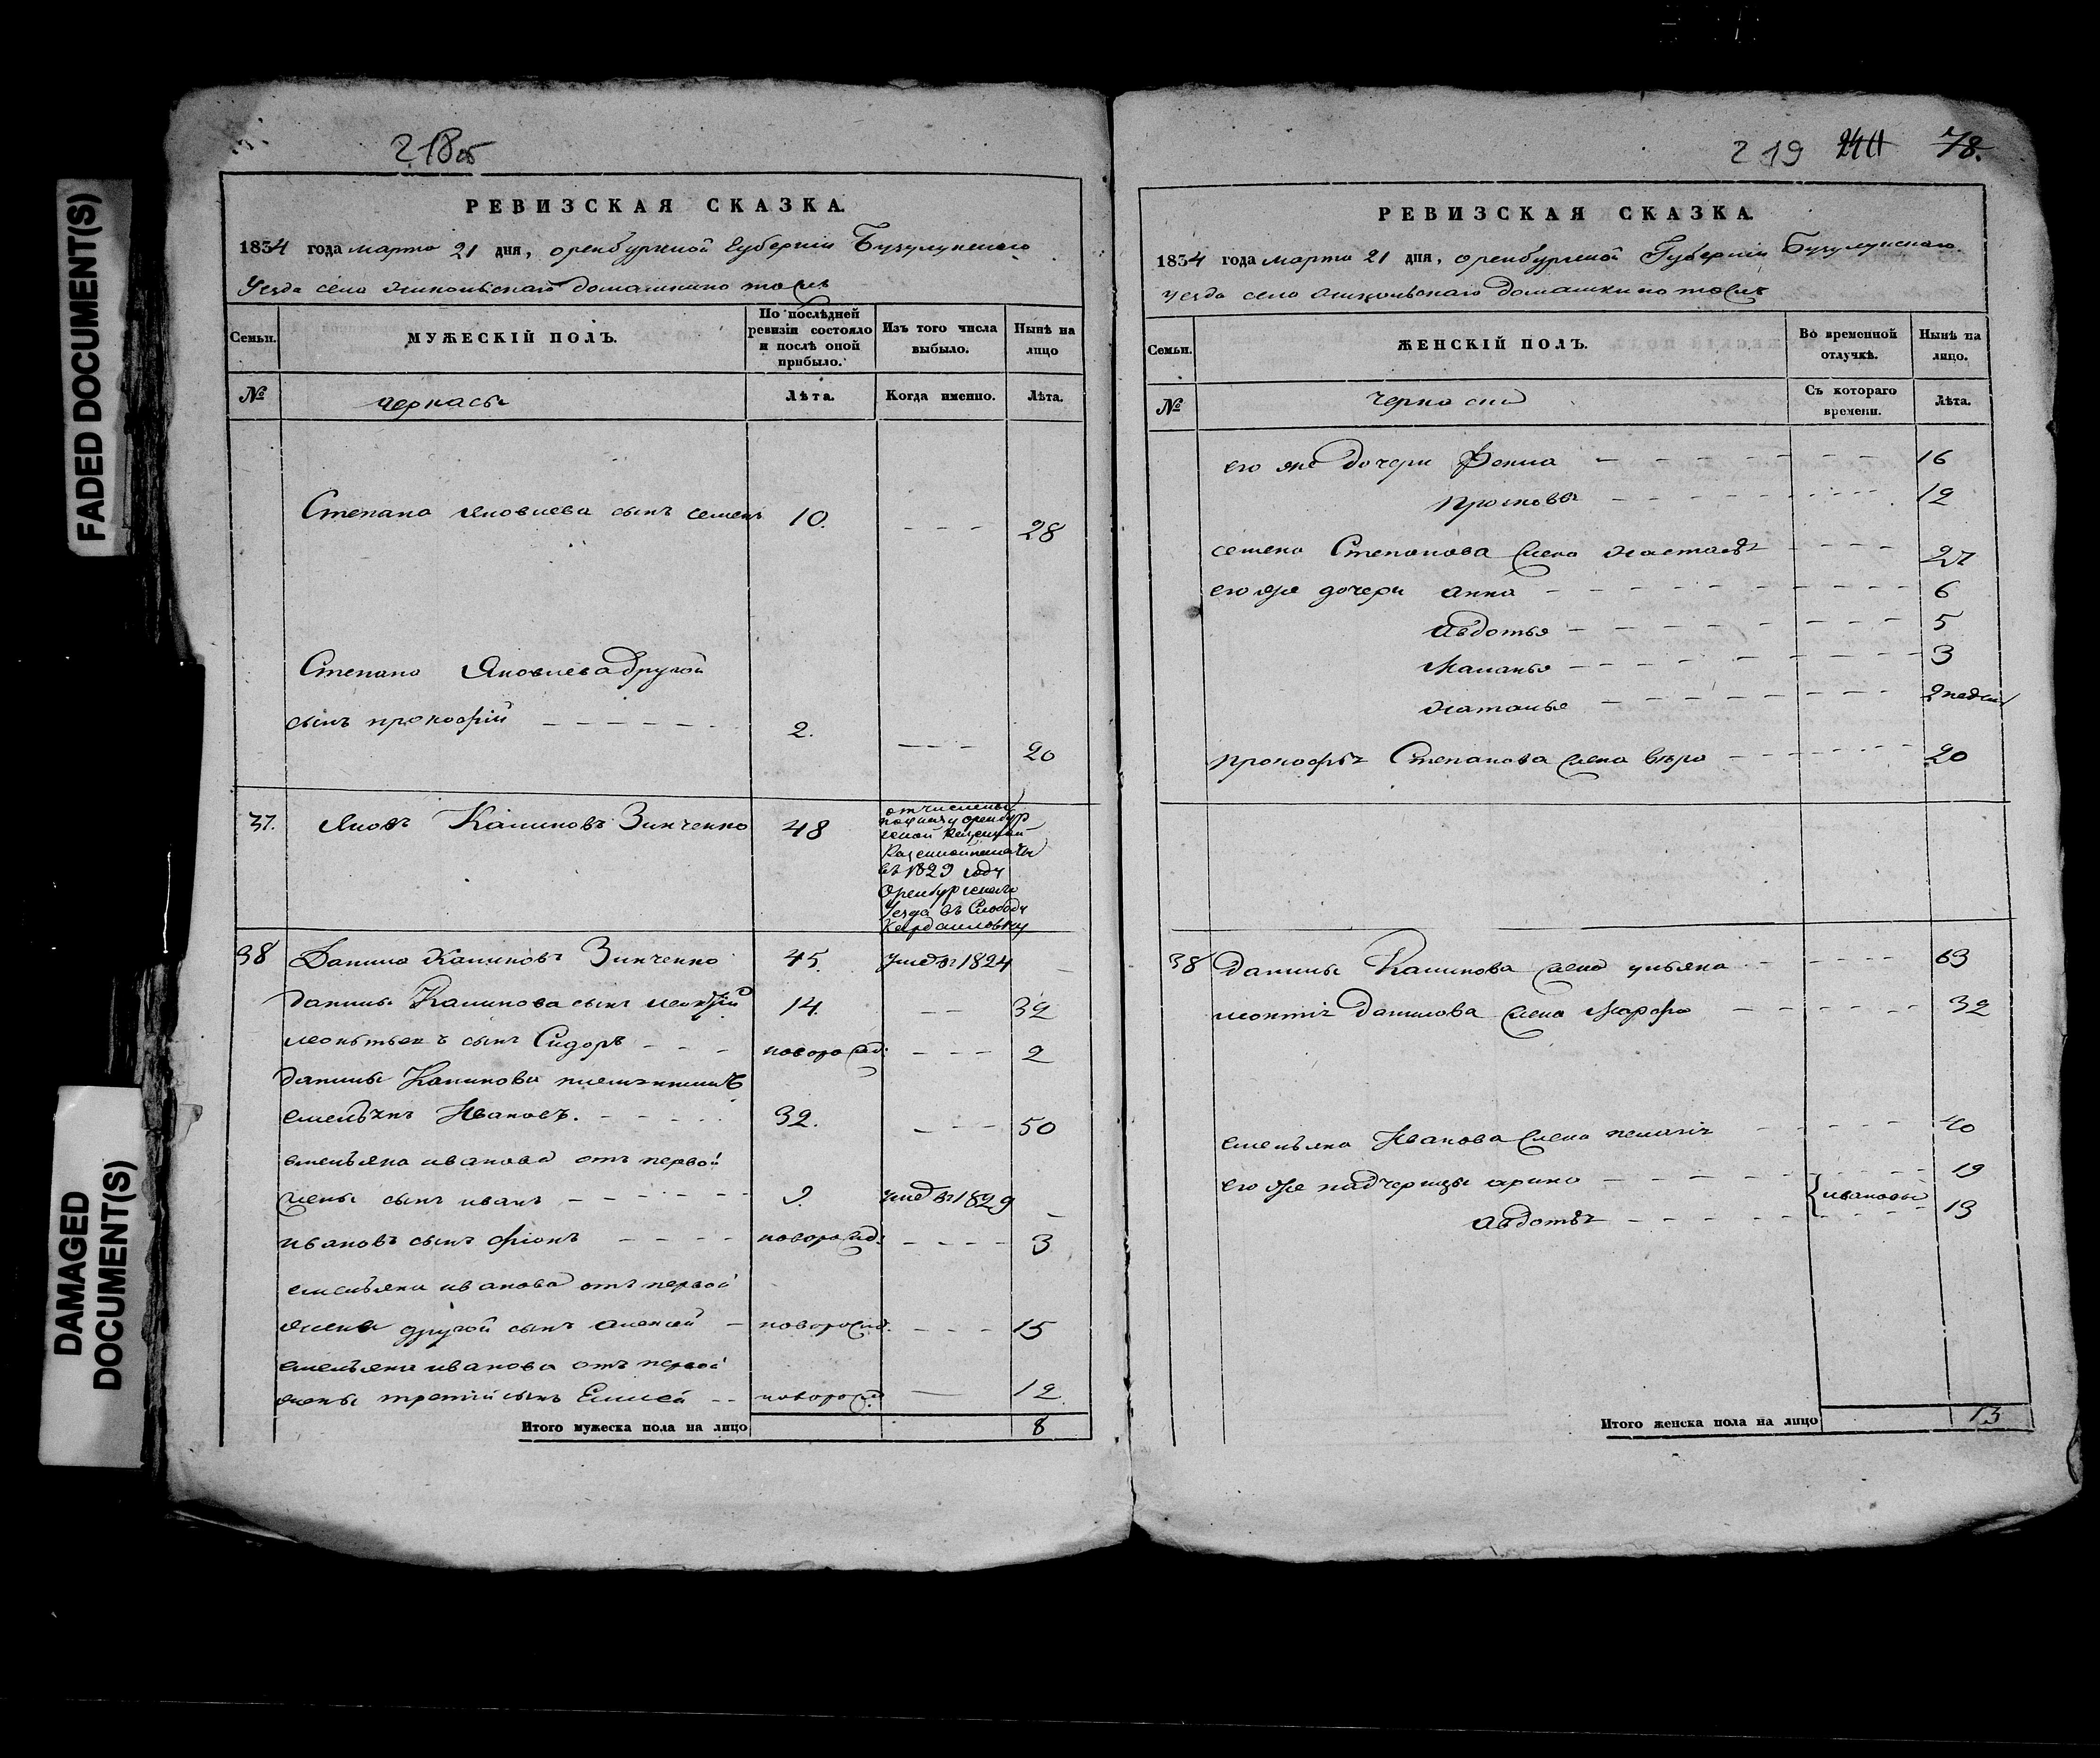 FADED DOCUMENT(S)
DAMAGED
DOCUMENT(S)
218об
РЕВИЗСКАЯ СКАЗКА.
1834 года марта 21 дня, оренбургской Губернiи Бузулукскаго
Уезда села Никольскаго домашкино тожъ
Семьи.
МУЖЕСКIЙ ПОЛЪ.
По послѣдней
ревизiи состояло
и послѣ оной
прибыло.
Изъ того числа
выбыло.
Нынѣ на
лицо
№
черкасы
Лѣта.
Когда именно.
Лѣта.
Степана яковлева сынъ семенъ 10. - - - 28
Степана Яковлева другой
сынъ прокофiй - - - - - - 2. - - - 20
37. Яковъ Калиновъ Зинченко 48
отчислены
оренбур
ской Казенной
въ 1829 году
Оренбургскаго
Уезда въ Слободу
Кардаиловку
38 Данила Калиновъ Зинченко 45. умеръ 1824 -
данилы Калинова сынъ леонтiй 14. - - 32
леонтьевъ сынъ Сидоръ - - - новорожд: - - - 2
данилы Калинова племянникъ
емельянъ Ивановъ. - - - - 32. - - - 50
емельяна иванова отъ первой
жены сынъ иванъ - - - - - - 9. умеръ 1829 -
ивановъ сынъ фiонъ - - - - новорожд: - - - - 3
емельяна иванова отъ первой
жены другой сынъ алексей - новорожд. - - - 15
емельяна иванова отъ первой
жены третiй сынъ Елисей - - новорожд. — 12
Итого мужеска пола на лицо 8
219 78.
РЕВИЗСКАЯ СКАЗКА.
1834 года марта 21 дня, оренбургской Губернiи Бузулукскаго
уезда села никольскаго домашкино тожъ
Семьи.
ЖЕНСКIЙ ПОЛЪ.
Во временной
отлучкѣ.
Нынѣ на
лицо.
№
черкасы
Съ котораго
времени.
Лѣта.
его же дочери Фекла - - - - - - - 16
прасковья - - - - - - - 12
семена Степанова жена настасья - - - - 27
его же дочери анна - - - - - - - - - 6
авдотья - - - - - - - - 5
маланья - - - - - - - - 3
наталья - - - - - - - 2 недели
прокофья Степанова жена вера - - - - - - 20
38 данилы Калинова жена ульяна - - - - - 63
леонтiя Данилова жена марфа - - - - - 32
емельяна Иванова жена пелагiя - - - - - 40
его же падчерицы арина - - - - - - 19
{ивановы
авдотья - - - - - 13
Итого женска пола на лицо 13